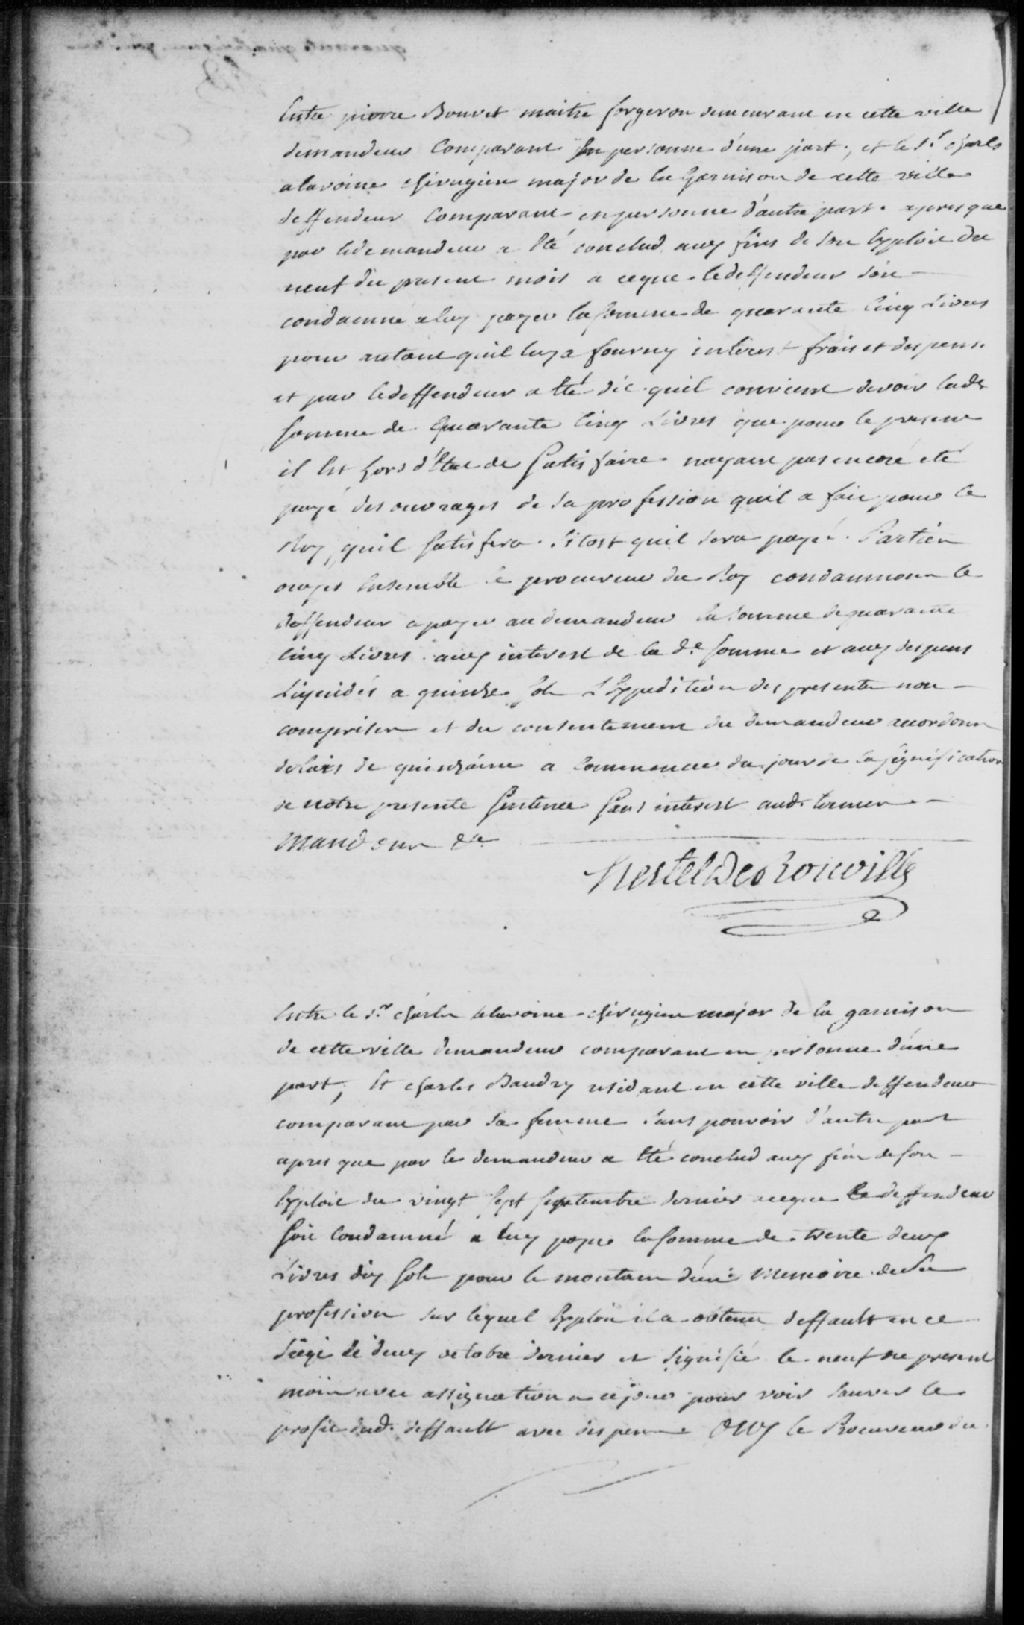 Entre pierre Bouvet maitre forgeron demeurant en cette ville
demandeur Comparant En personne d'une part, et le Sr charle
alavoine chirugien major de la Garnison de cette ville
deffendeur Comparant en personne d'autre part. apres que
par ledemandeur a Eté conclud aux fins de son Exploit du
neuf du present mois a ceque ledeffendeur soit
condamné aluy payer lasomme de quarante Cinq Livres
pour autant quil luy a fourny interest frais et despens.
et par ledeffendeur a Eté dit quil convient devoir lade
Somme de Quarante Cinq Livres que pour le present
il Est hors d'Etat de Satisfaire nayant pas encore eté
payé des ouvrages de Sa profession quil a fait pour le
Roy, quil Satisfera Sitost quil Sera payé. Parties
ouyes Ensemble le procureur du Roy condamnons le
deffendeur apayer audemandeur la Somme dequarante
Cinq Livres. aux interest de la de. Somme et aux despens
Liquidés a quinze Sols L'Expedition des presente non
comprises et du consentement du demandeur accordons
delais de quinzaine a Commencer du jour de la Signification
de notre presente Sentence Sans interest aud. terme
Mandons &a
Hertel De Rouville
Entre le Sr. charle alavoine chirugien major de la garnison
de cette ville demandeur comparant en personne d'une
part, Et charles Baudry residant en cette ville deffendeur
comparant par Sa femme Sans pouvoir d'autre part
apres que par le demandeur a Eté conclud aux fins de Son
Exploit du vingt Sept Septembre dernier aceque le deffendeur
Soit Condamné a luy payer lasomme de trente deux
Livres dix Sols pour le montant d'un Memoire de Sa
profession Sur lequel Exploit il a obtenu deffault en ce
Siege le deux octobre dernier et Signifié le neuf du present
mois avec assignation a cejour pour voir Sauver le
profit dud. deffault avec despens OUY le Procureur du